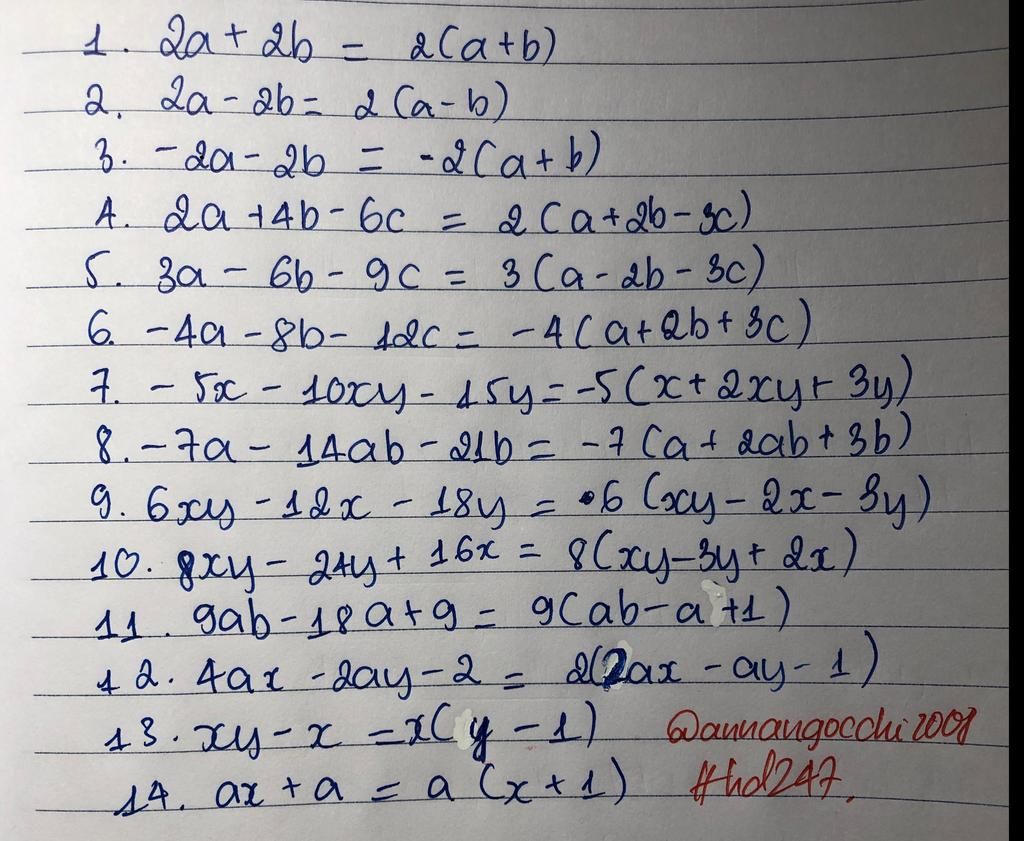 1. 2a + 2b = 2(a+b)
2. 2a - 2b = 2(a-b)
3. -2a - 2b = -2(a+b)
4. 2a + 4b - 6c = 2(a+2b-3c)
5. 3a - 6b - 9c = 3(a-2b-3c)
6. -4a - 8b - 12c = -4(a+2b+3c)
7. -5x - 10xy - 15y = -5(x+2xy+3y)
8. -7a - 14ab - 21b = -7(a+2ab+3b)
9. 6xy - 12x - 18y = 6(xy-2x-3y)
10. 8xy - 24y + 16x = 8(xy-3y+2x)
11. 9ab - 18a + 9 = 9(ab-a+1)
12. 4ax - 2ay - 2 = 2(2ax-ay-1)
13. xy - x = x(y-1) @annangocchi2008
14. ax + a = a(x+1) #hd247.